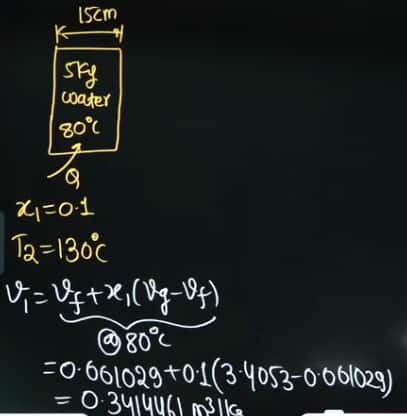 15cm
5Kg
water
80°C
Q
x₁=0.1
T₂=130°C
v₁=vf+x₁(vg-vf)
@80°C
=0.001029+0.1(3.4053-0.001029)
=0.3414461 m³/kg